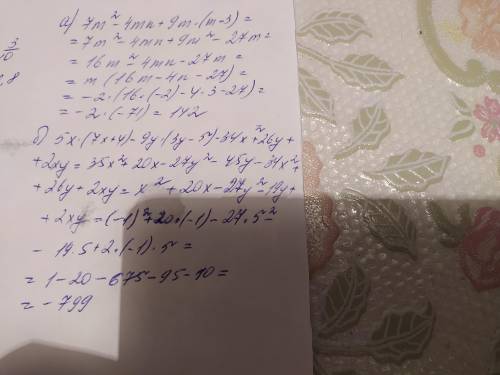 3
10
,8
а) 7m² - 4mn + 9m · (m - 3) =
= 7m² - 4mn + 9m² - 27m =
= 16m² - 4mn - 27m =
= m (16m - 4n - 27) =
= -2 · (16 · (-2) - 4 · 3 - 27) =
= -2 · (-71) = 142
б) 5x · (7x + 4) - 9y · (3y - 5) - 34x² + 26y +
+ 2xy = 35x² 20x - 27y² - 45y - 34x² +
+ 26y + 2xy = x² + 20x - 27y² - 19y +
+ 2xy = (-1)² + 20 · (-1) - 27 · 5² -
- 19 · 5 + 2 · (-1) · 5 =
= 1 - 20 - 675 - 95 - 10 =
= - 799